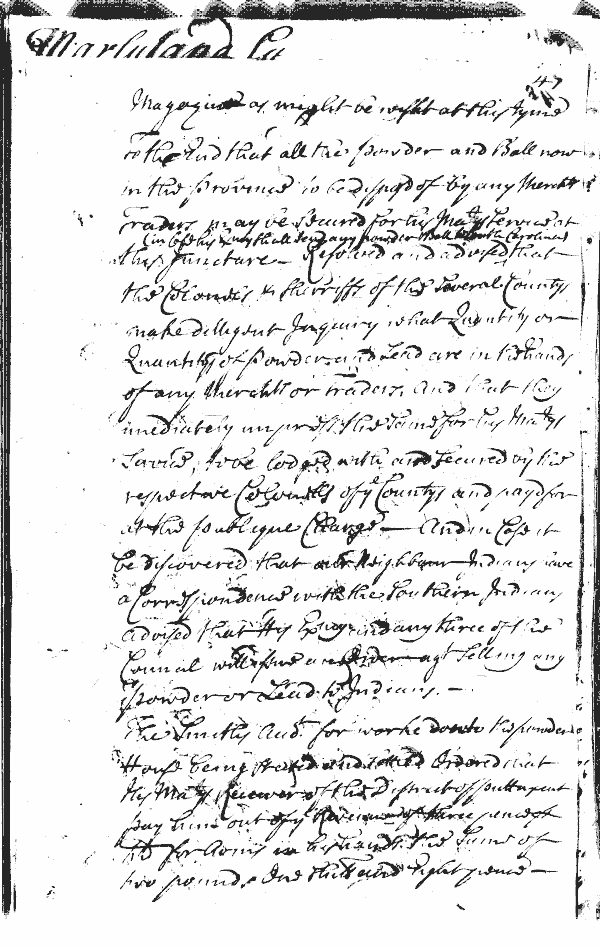 Maryland ss
47
Magazine as might be wisht at this tyme
to the End that all the Powder and Ball now
in the Province to be disposed of by any Mercht
Traders may be secured for his Matys Service at
(in Case his Exncy shall send any powder & Ball to South Carolina)
this Juncture — Resolved and advised that
the Colonels & Sherriffs of the Severall Countys
make dilligent Inquiry what Quantity or
Quantitys of Powder and Lead are in the hands
of any Merchts or traders, And that they
imediately impress the same for his Matys
Service, to be lodged with and secured by the
respective Colonells of ye Countys and payd for
at the publique Charge — And in Case it
be discovered that our Neighbour Indians have
a Correspondence with the Southern Indians
advised that His Exncy and any three of the
Council will issue an Order agt Selling any
Powder or Lead to Indians. —
The Smiths Acct for worke don to the powder
House being stated and Ordered that
His Matys Receiver of the District of puttuxent
pay him out of ye Revenue of three pence
for Arms in his hands the Sume of
two pounds One and Eight pence —